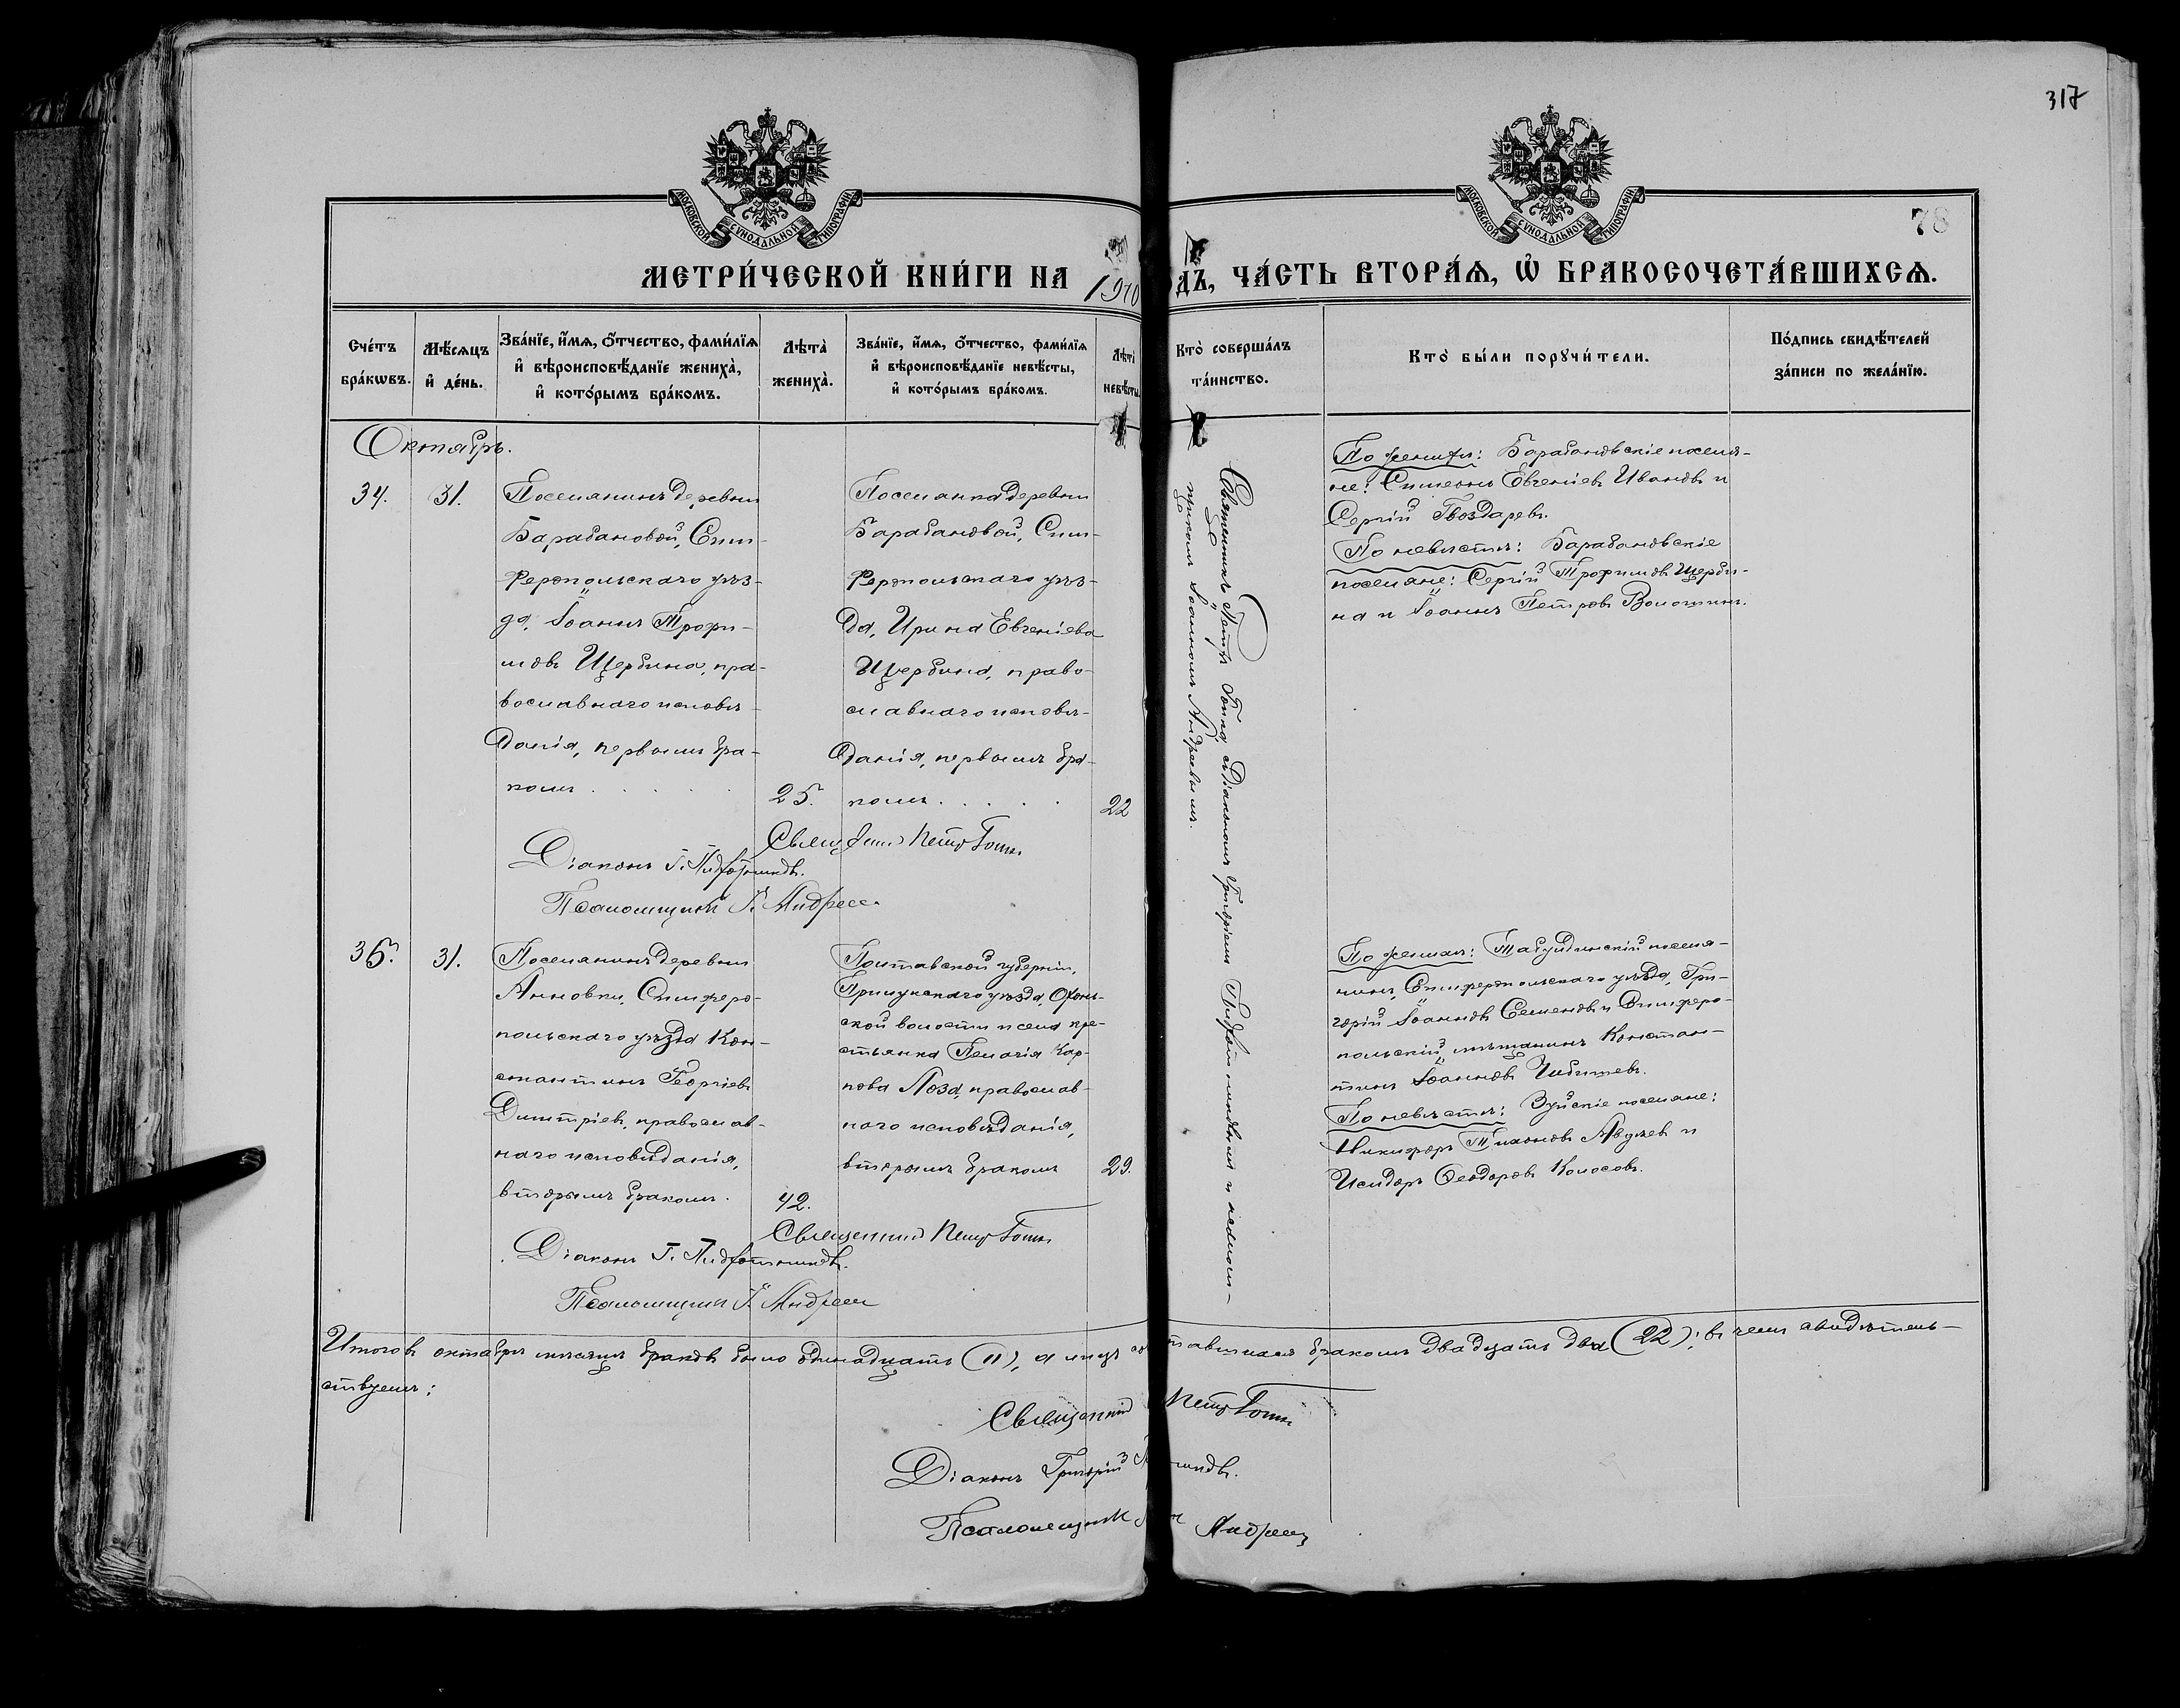 317
78
МОСКОВСКОЙ СУНОДАЛЬНОЙ ТИПОГРАФИИ
МОСКОВСКОЙ СУНОДАЛЬНОЙ ТИПОГРАФИИ
МЕТРИ́ЧЕСКОЙ КНИ́ГИ НА 1910
ДЪ, ЧА́СТЬ ВТОРА́Ѧ, Ѡ БРАКОСОЧЕТА́ВШИХСѦ.
Сче́тъ бра́кѡвъ.
Мѣ́сѧцъ и де́нь.
Зва́нїе, и́мѧ, ѻ́тчество, фами́лїѧ
и вѣроисповѣ́данїе жениха̀,
и кото́рымъ бра́комъ.
Лѣта̀ жениха̀.
Зва́нїе, и́мѧ, ѻ́тчество, фами́лїѧ
и вѣроисповѣ́данїе невѣ́сты,
и кото́рымъ бра́комъ.
Лѣта̀ невѣ́сты.
Кто̀ соверша́лъ
та́инство.
Кто̀ бы́ли порꙋчи́тели.
По́дпись свидѣ́телей
за́писи по жела́нїю.
Октябрь.
34. 31.
Поселянинъ деревни
Барабановой, Сим-
феропольскаго уѣз-
да, Іоаннъ Трофи-
мовъ Щербина, пра-
вославнаго исповѣ-
данія, первымъ бра-
комъ . . . . . 25.
Поселянка деревни
Барабановой, Сим-
феропольскаго уѣз-
да, Ирина Евгеніева
Щербина, право-
славнаго исповѣ-
данія, первымъ бра-
комъ . . . . 22
Священникъ Петръ
Діаконъ Г.
Псаломщикъ І. Андреев
Священникъ Петръ діакономъ Григоріемъ и псалом-
щикомъ Іоанномъ Андреевымъ.
По женихѣ: Барабановскіе поселя-
не: Симеонъ Евгеніевъ Ивановъ и
Сергій Гвоздаревъ.
По невѣстѣ: Барабановскіе
поселяне: Сергій Трофимовъ Щерби-
на и Іоаннъ Петровъ Волошинъ.
35. 31.
Поселянинъ деревни
Анновки, Симферо-
польскаго уѣзда Кон-
стантинъ Георгіевъ
Димитріевъ, православ-
наго исповѣданія,
вторымъ бракомъ. 42.
Полтавской губерніи,
Прилукскаго уѣзда,
волости и села кре-
стьянка Пелагія Кар-
пова Лоза, православ-
наго исповѣданія,
вторымъ бракомъ 29.
Священникъ Петръ
Діаконъ Г.
Псаломщикъ І. Андреев
По женихѣ: Табулдинскій поселя-
нинъ, Симферопольскаго уѣзда, Гри-
горій Іоанновъ Семеновъ и Симферо-
польскій мѣщанинъ Констан-
тинъ Іоанновъ
По невѣстѣ: Зуйскіе поселяне:
Никифоръ Тихоновъ и
Исидоръ Ѳеодоровъ Колосовъ.
Итого въ октябрѣ мѣсяцѣ браковъ было одинадцать (11), а лицъ тавшихся бракомъ двадцать два (22); въ чемъ свидѣтель-
ствуемъ:
Священникъ Петръ
Діаконъ Григорій
Псаломщикъ Андреев